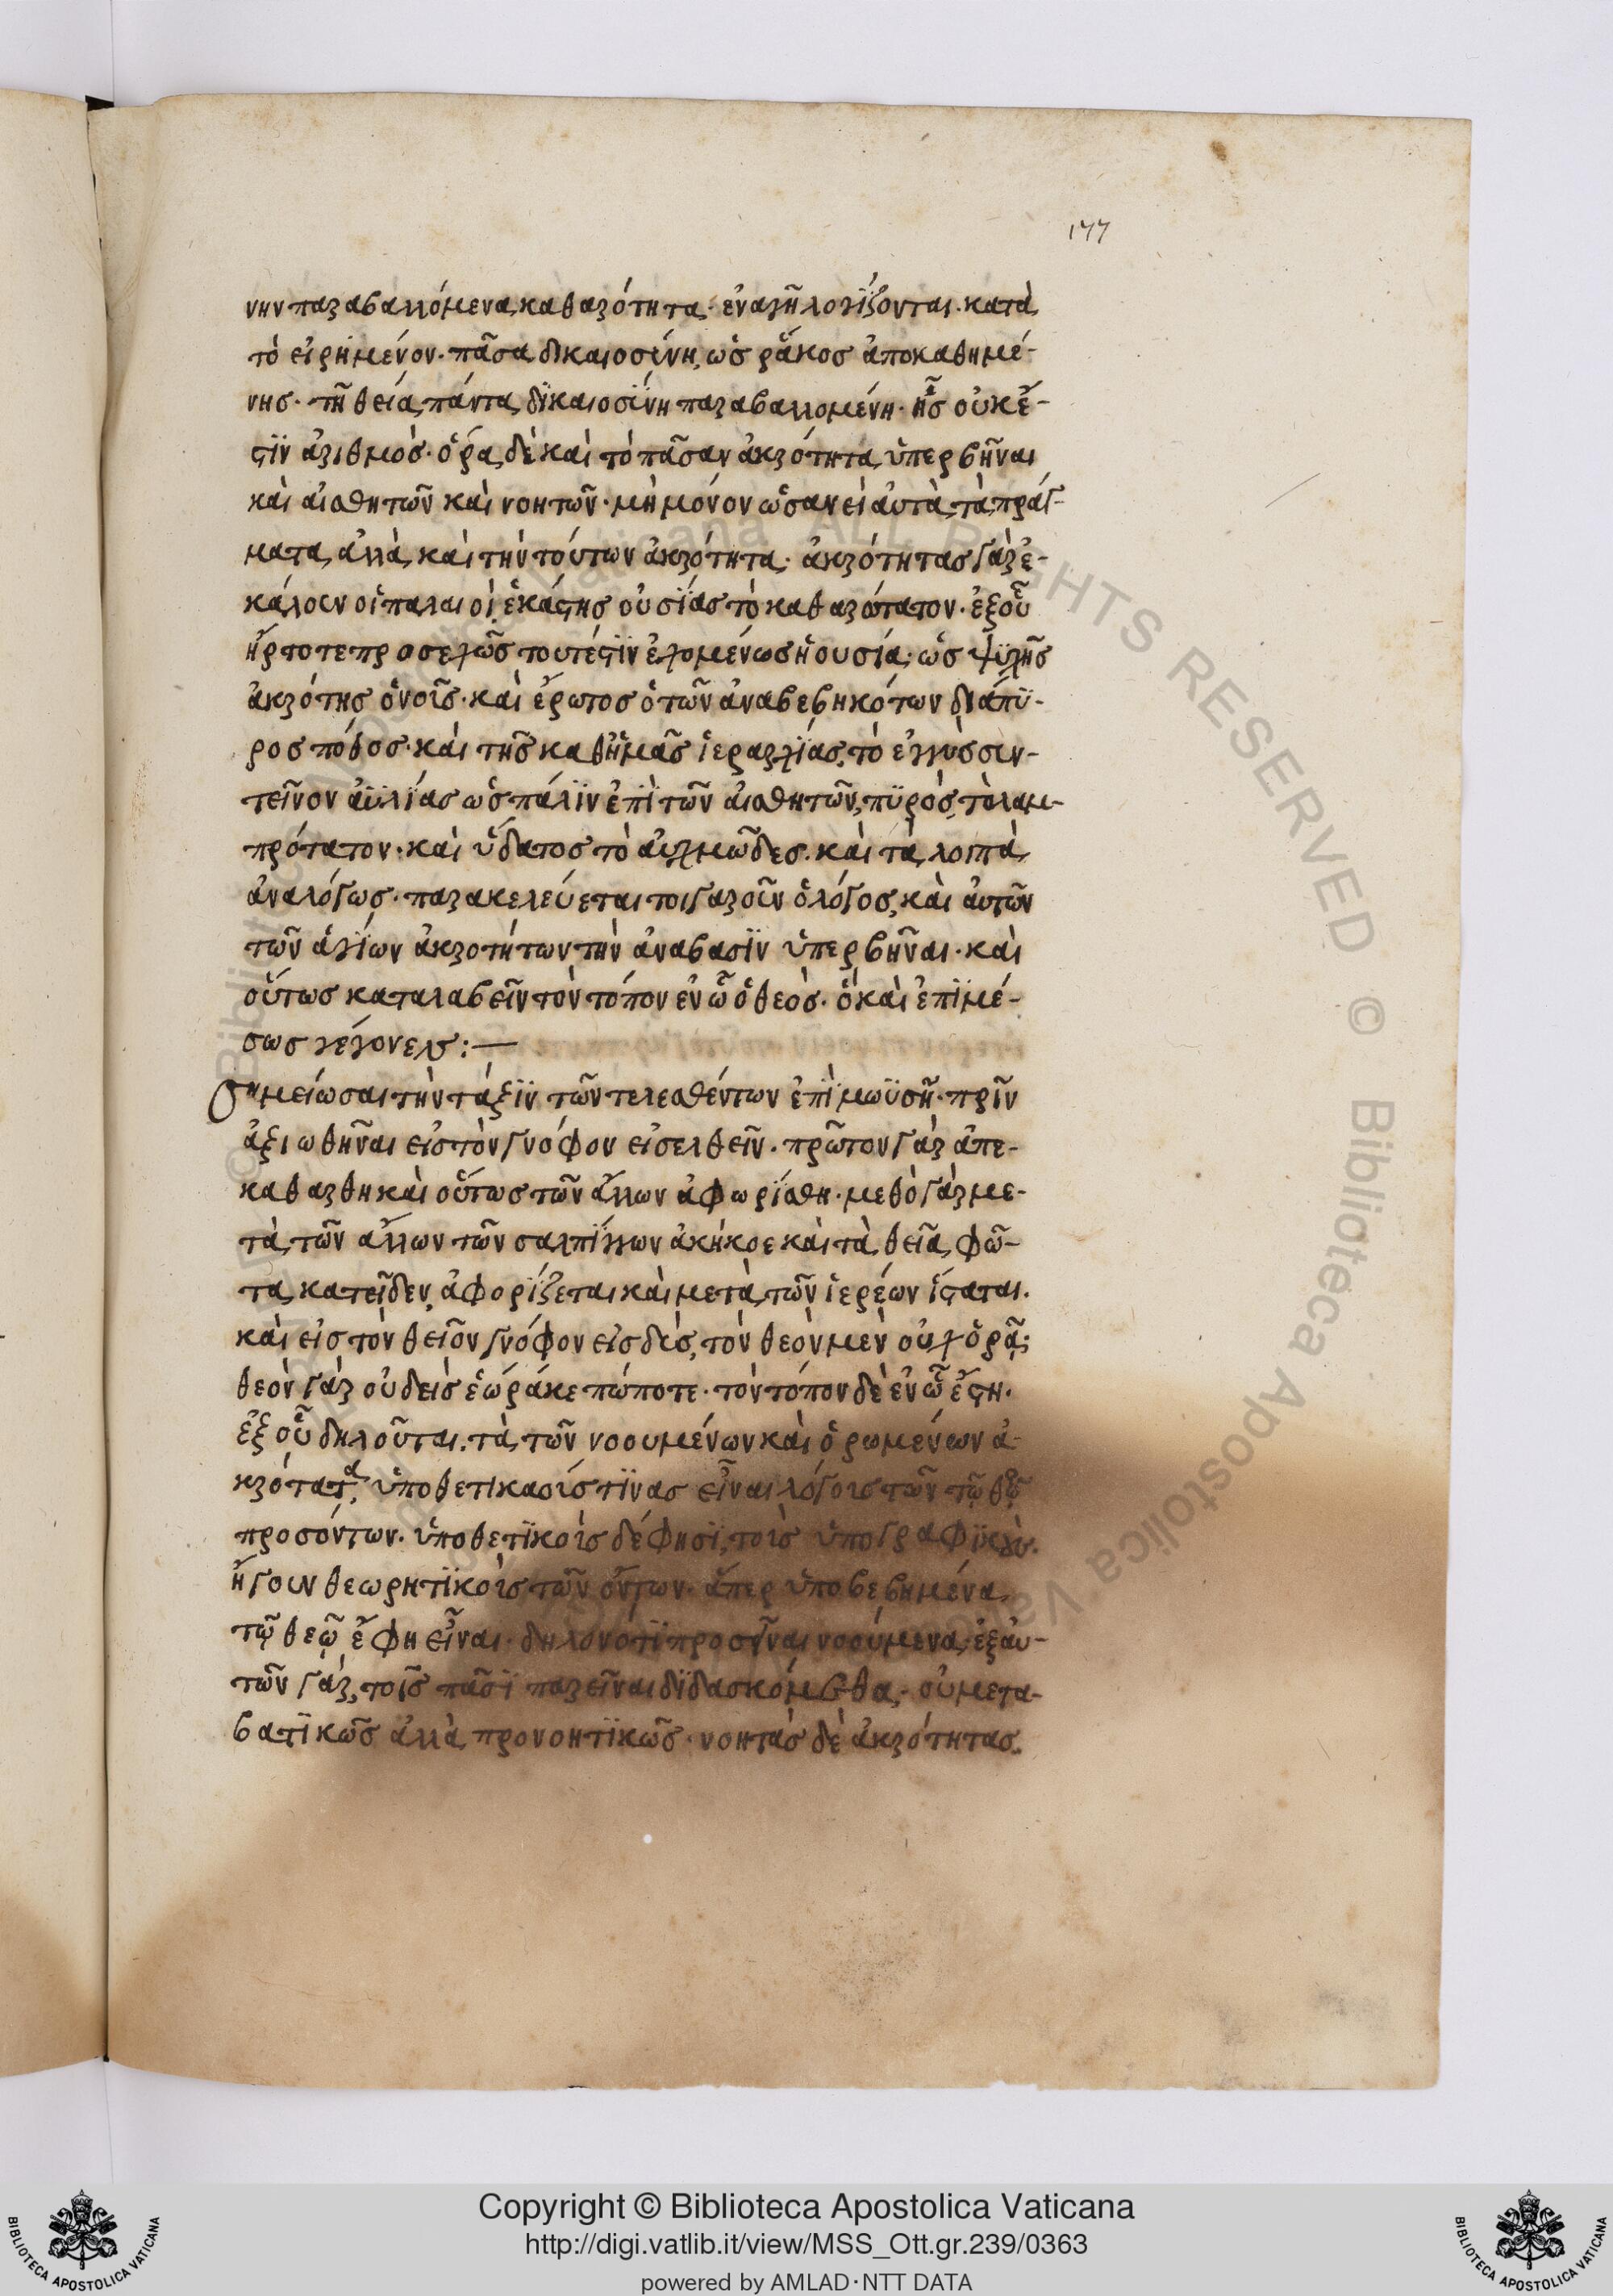 177
νην παραβαλλόμενα καθαρότητα· ἐναγῆ λογίζονται. κατὰ
τὸ εἰρημένον· πᾶσα δικαιοσύνη, ὡς ῥάκος ἀποκαθημέ-
νης· τῇ θείᾳ πάντα δικαιοσύνη παραβαλλομένη· ἧς οὐκ ἔ-
στιν ἀριθμός· ὅρα δὲ καὶ τὸ πᾶσαν ἀκρότητα ὑπερβῆναι
καὶ αἰσθητῶν καὶ νοητῶν· μὴ μόνον ὡσανεὶ αὐτὰ τὰ πράγ-
ματα ἀλλὰ καὶ τὴν τούτων ἀκρότητα· ἀκρότητας γὰρ ἐ-
κάλουν οἱ παλαιοὶ ἑκάστης οὐσίας τὸ καθαρώτατον· ἐξ οὗ
ἤρτοτε προσεχῶς τουτέστιν ἐχομένως ἡ ουσία· ὡς ψυχῆς
ἀκρότης ὁ νοῦς· καὶ ἔρωτος ὁ τῶν ἀναβεβηκότων διάπυ-
ρος πόθος· καὶ τῆς καθἡμᾶς ἱεραρχίας, τὸ ἐγγὺς συν-
τεῖνον ἀϋλίας ὡς πάλιν ἐπὶ τῶν αἰσθητῶν, πυρὸς, τὸ λαμ-
πρότατον· καὶ ὕδατος τὸ αὐχμῶδες. καὶ τὰ λοιπὰ
ἀναλόγως· παρακελεύεται τοιγαροῦν ὁ λόγος, καὶ αὐτῶν
τῶν ἁγίων ἀκροτήτων τὴν ἀναβασιν ὑπερβῆναι· καὶ
οὕτως καταλαβεῖν τὸν τόπον ἐν ᾧ ὁ θεὸς· ὃ καὶ ἐπὶ μέ-
σως γέγονεν :—
Σημείωσαι τὴν τάξιν τῶν τελεσθέντων ἐπὶ μωϋσῆ· πρὶν
ἀξιωθῆναι εἰς τὸν γνόφον εἰσελθεῖν· πρῶτον γὰρ ἀπε-
καθαρθη καὶ οὕτως τῶν ἄλλων ἀφωρίσθη· μεθὸ γὰρ με-
τὰ τῶν ἄλλων τῶν σαλπίγγων ἀκήκοε καὶ τὰ θεῖα φῶ-
τα κατεῖδεν, ἀφορίζεται καὶ μετὰ τῶν ἱερέων ἵσταται.
καὶ εἰς τὸν θεῖον γνόφον εἰσδὺς, τὸν θεὸν μὲν οὐχ ὁρᾷ·
θεὸν γὰρ οὐδεὶς ἑώρακε πώποτε· τὸν τόπον δὲ ἐν ᾧ ἔστη·
ἐξ οὗ δηλοῦται. τὰ τῶν νοουμένων καὶ ὁρωμένων ἀ-
κρότατα, ὑποθετικαούς τινας εἶναι λόγους τῶν τῷ θῷ
προσόντων· ὑποθετικοὺς δέ φησι, τοὺς ὑπογραφικοὺς.
ἤγουν θεωρητικοὺς τῶν ὄντων· ἅπερ ὑποβεβημένα
τῷ θεῷ ἔφη εἶναι· δηλονοτι προσῆναι νοούμενα, ἐξ αὐ-
τῶν γὰρ, τοῖς πᾶσι παρεῖναι διδασκόμεθα· οὐ μετα-
βατικῶς ἀλλὰ προνοητικῶς· νοητὰς δὲ ἀκρότητας.
© Biblioteca Apostolica Vaticana ALL RIGHTS RESERVED © Biblioteca Apostolica Vaticana
Copyright © Biblioteca Apostolica Vaticana
http://digi.vatlib.it/view/MSS_Ott.gr.239/0363
powered by AMLAD·NTT DATA
BIBLIOTECA APOSTOLICA VATICANA
BIBLIOTECA APOSTOLICA VATICANA